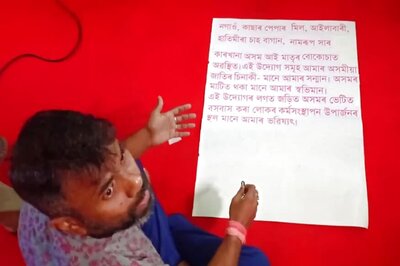 নগাওঁ, কাছাৰ পেপাৰ মিল, আইলাবাৰী,
হাতিমীৰা চাহ বাগান, নামৰূপ সাৰ
কাৰখানা অসম আই মাতৃৰ বোকোচাত
অৱস্থিত। এই উদ্যোগ সমূহ আমাৰ অসমীয়া
জাতিৰ চিনাকী- মানে আমাৰ সন্মান। অসমৰ
মাটিত থকা মানে আমাৰ স্বভিমান।
এই উদ্যোগৰ লগত জড়িত অসমৰ ভেটিত
বসবাস কৰা লোকৰ কৰ্মসংস্থাপন উপাৰ্জনৰ
স্থল মানে আমাৰ ভৱিষ্যৎ।